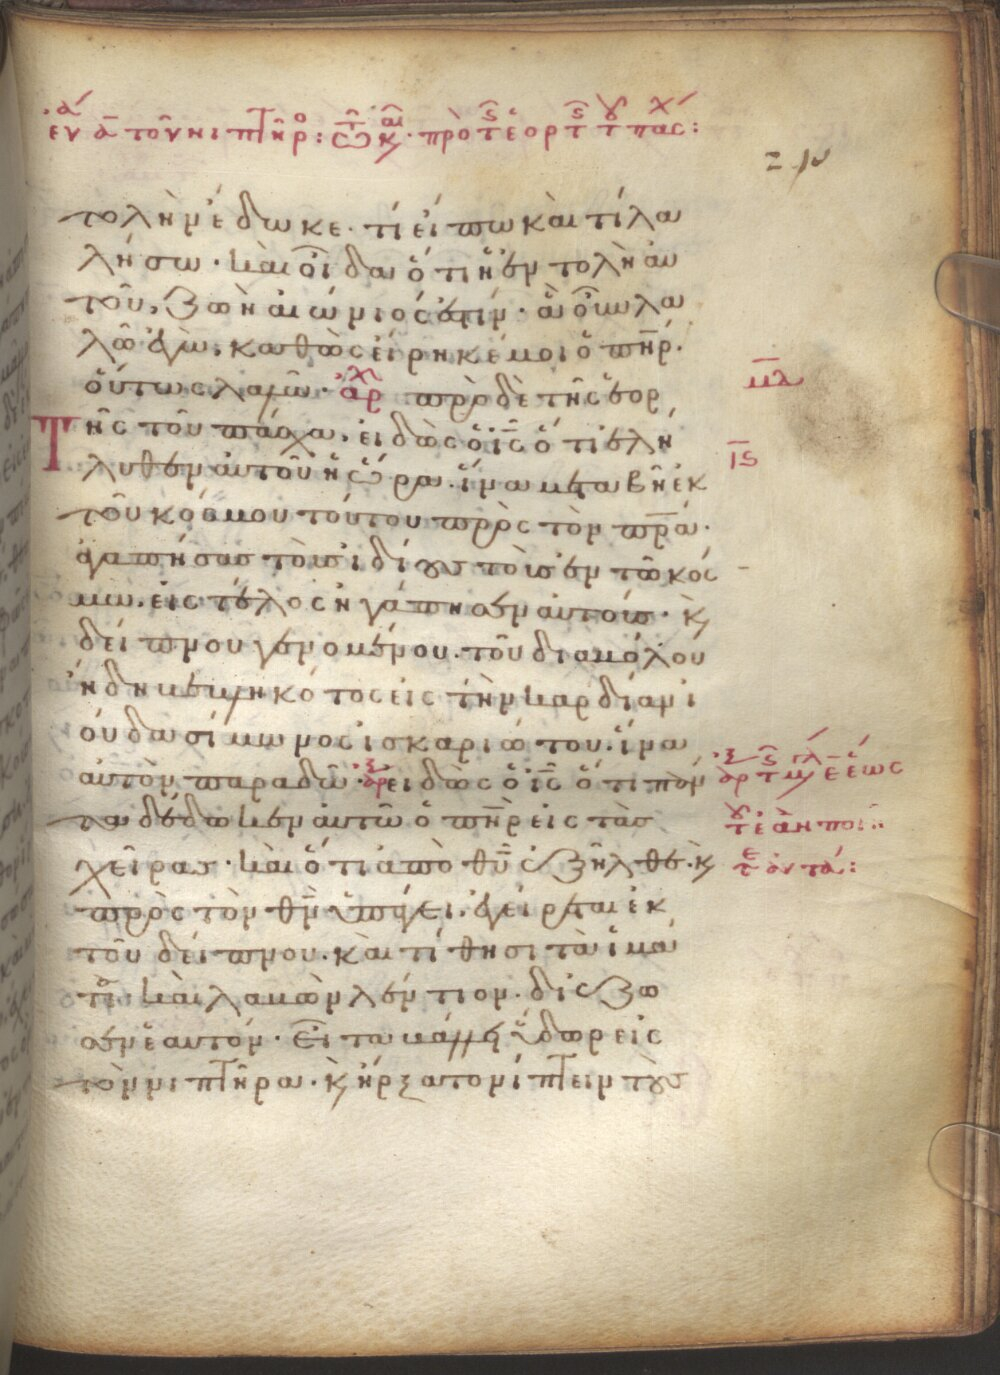 τολὴν ἔδωκε· τί εἴπω καὶ τί λα
λήσω· καὶ οἶδα ὅτι ἡ ἐντολὴ αὐ
τοῦ, ζωὴ αἰώνιός ἐστιν· ἃ οὖν λα
λῶ ἐγὼ, καθὼς εἴρηκέ μοι ὁ πηρ·
οὕτως λαλῶ· ἀρχ πρὸ δὲ τῆς ἑορ
Τῆς τοῦ πάσχα, εἰδὼς ὁ ις ὅτι ἐλή
λυθεν αὐτοῦ ἡ ὥρα· ἵνα μεταβῆ ἐκ
τοῦ κόσμου τούτου πρὸς τὸν πρα·
ἀγαπήσας τοὺς ἰδίους τοὺς ἐν τῶ κόσ
μω· εἰς τέλος ἠγάπησεν αὐτούς· κ
δείπνου γενομένου· τοῦ διαβόλου
ἤδη βεβληκότος εἰς τὴν καρδίαν ἰ
ούδα σίμωνος ἰσκαριώτου· ἵνα
αὐτὸν παραδῶ· εἰδὼς ὁ ις ὅτι πάν
τα δέδωκεν αὐτῶ ὁ πηρ εἰς τὰς
χεῖρας· καὶ ὅτι ἀπὸ θυ ἐξῆλθε· κ
πρὸς τὸν θν ὑπάγει· ἐγείρεται ἐκ
τοῦ δείπνου· καὶ τίθησι τὰ ἱμά
τι· καὶ λαβὼν λέντιον· διέζω
σεν ἑαυτόν· εἶτα βάλλει ὕδωρ εἰς
τὸν νιπτῆρα· κ ἤρξατο νίπτειν τοὺς